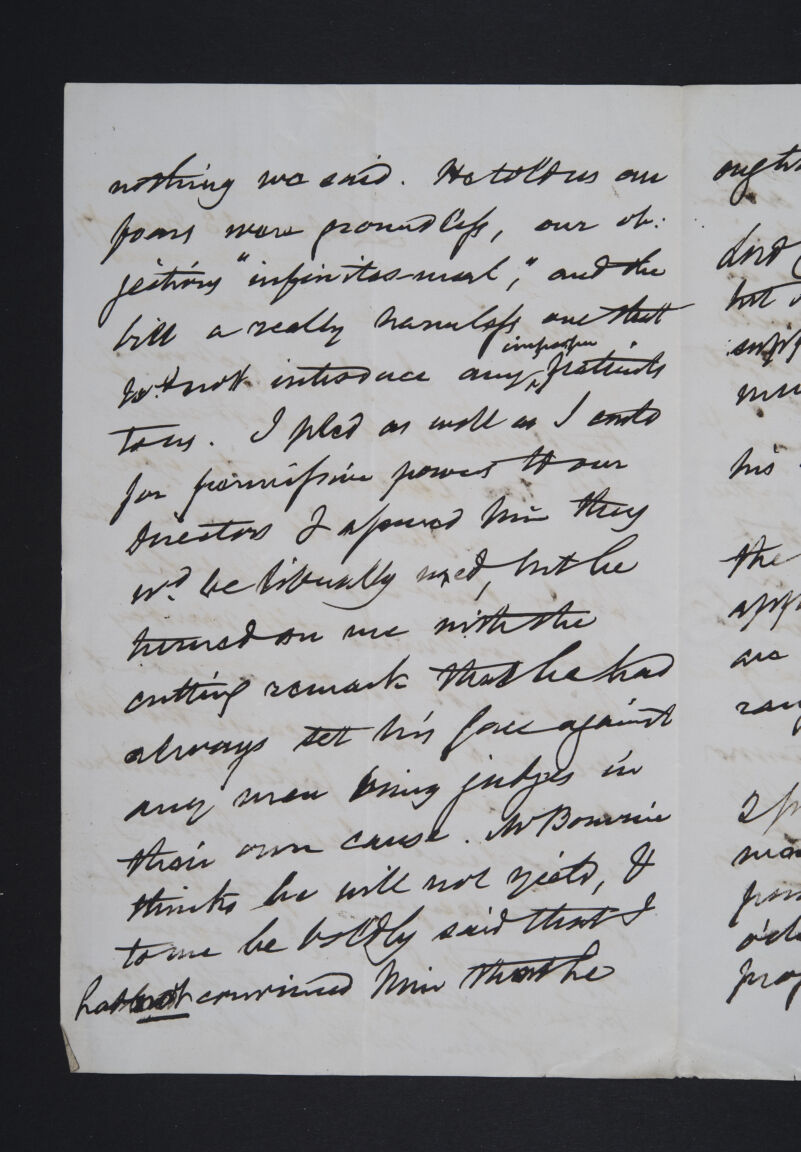 nothing we said. He told us our
fears were groundless, our ob:
jections "infinitesimal," and the
bill a really harmless one that
improper
wd not introduce any ‸ patients
to us. I pled as well as I could
for permissive power to our
Directors I assured him they
wd be liberally used, but he
turned on me with the
cutting remark that he had
always set his face against
any men being judges in
their own cause. Mr Bouverie
thinks he will not yield, &
to me he boldly said that I
had not convinced him that he
ought
Lord
but
his
the
are